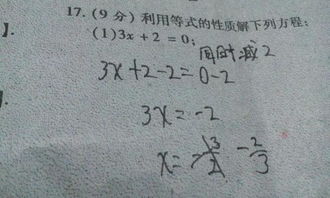 17. (9分) 利用等式的性质解下列方程:
】.
(1)3x + 2 = 0; 同时减2
3x+2-2=0-2
3x=-2
x= -2/3